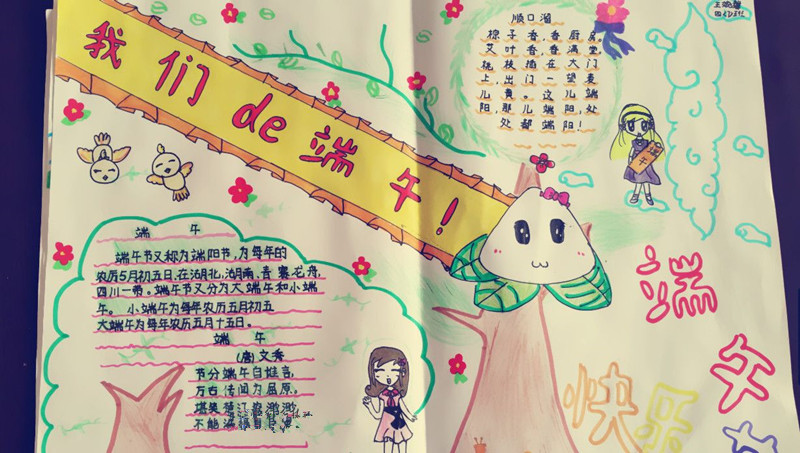 我们de端午！
顺口溜
粽子香,香厨房,
艾叶香,香满堂
桃枝插在大门
上,出门一望麦
儿黄。这儿端
阳,那儿端阳,处
处都端阳！
端午
端午
端午节又称为端阳节,为每年的
农历5月初五日,在湖北,湖南,贵
四川一带。端午节又分为大端午和小端
午。小端午为每年农历五月初五
大端午为每年农历五月十五日。
端午
(唐)文秀
节分端午自谁言,
万古传闻为屈原。
堪笑楚江
不能
端午
快乐